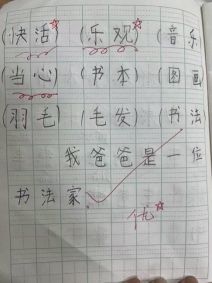 (快活) (乐观) (音乐
(当心) (书本) (图画
(羽毛) (毛发) (书法
我爸爸是一位
书法家。
优